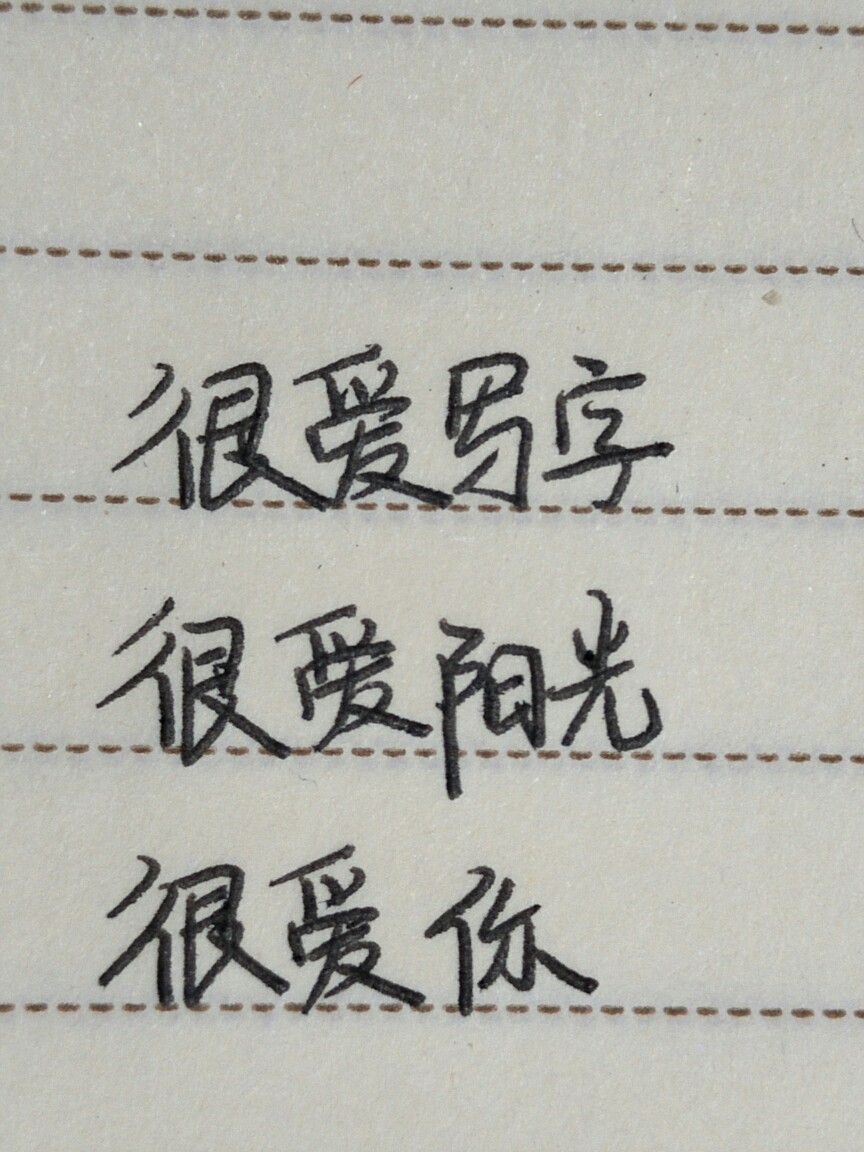 很爱写字
很爱阳光
很爱你